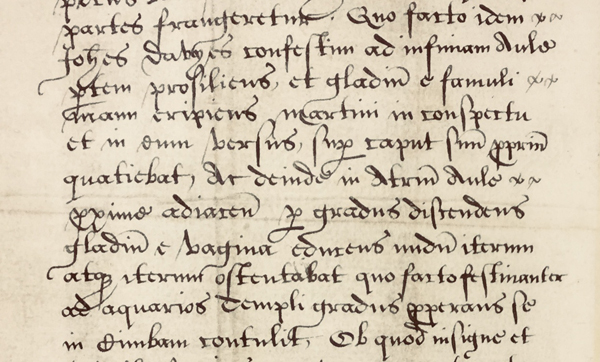 partes frangeretur. Quo facto idem
Johes Davyes confestim ad infimam Aule
ptem prosiliens, et gladiū e famuli
manu eripiens Martini in conspectu
et in eum versus, sup caput suū ppriū
quatiebat, Ac deinde in Atriū Aule
pxime adiacen p gradus discendens
gladiū e vagina educens nudū iterum
atq iterum ostentabat quo facto festinanter
ad aquarios Templi gradus pperans se
in Cimbam contulit, Ob quod insigne et